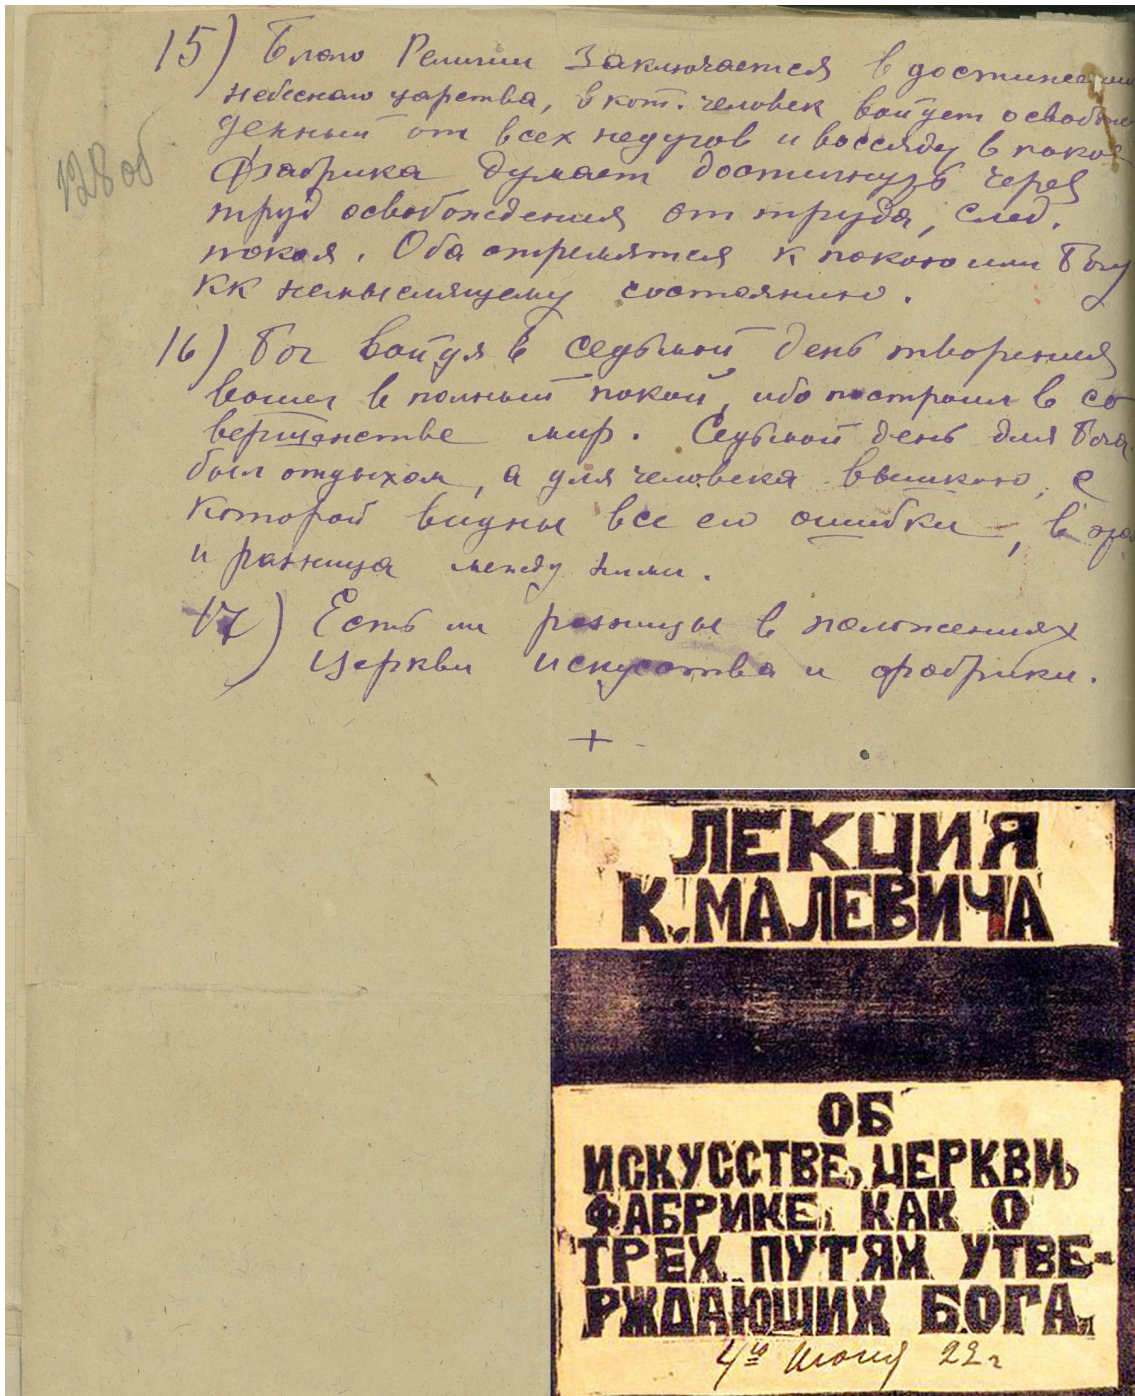 15) Благо Религии Заключается в достижении
небесного царства, в кот. человек войдет освобож
денный от всех недугов и воссяду в покой
Фабрика думает достигнуть через
труд освобождения от труда, след.
покоя. Оба стремятся к покою или Богу
кк немыслящему состоянию.
128 об
16) Бог войдя в седьмой день творения
вошел в полный покой, ибо построил в со
вершенстве мир. Седьмой день для Бога
был отдыхом, а для человека вышкою, с
которой видны все его ошибки, в этом
и разница между ними.
17) Есть ли разницы в положениях
Церкви искусства и фабрики.
+
ЛЕКЦИЯ
К. МАЛЕВИЧА
ОБ
ИСКУССТВЕ, ЦЕРКВИ,
ФАБРИКЕ, КАК О
ТРЕХ ПУТЯХ УТВЕ-
РЖДАЮЩИХ БОГА.
4го Июня 22 г